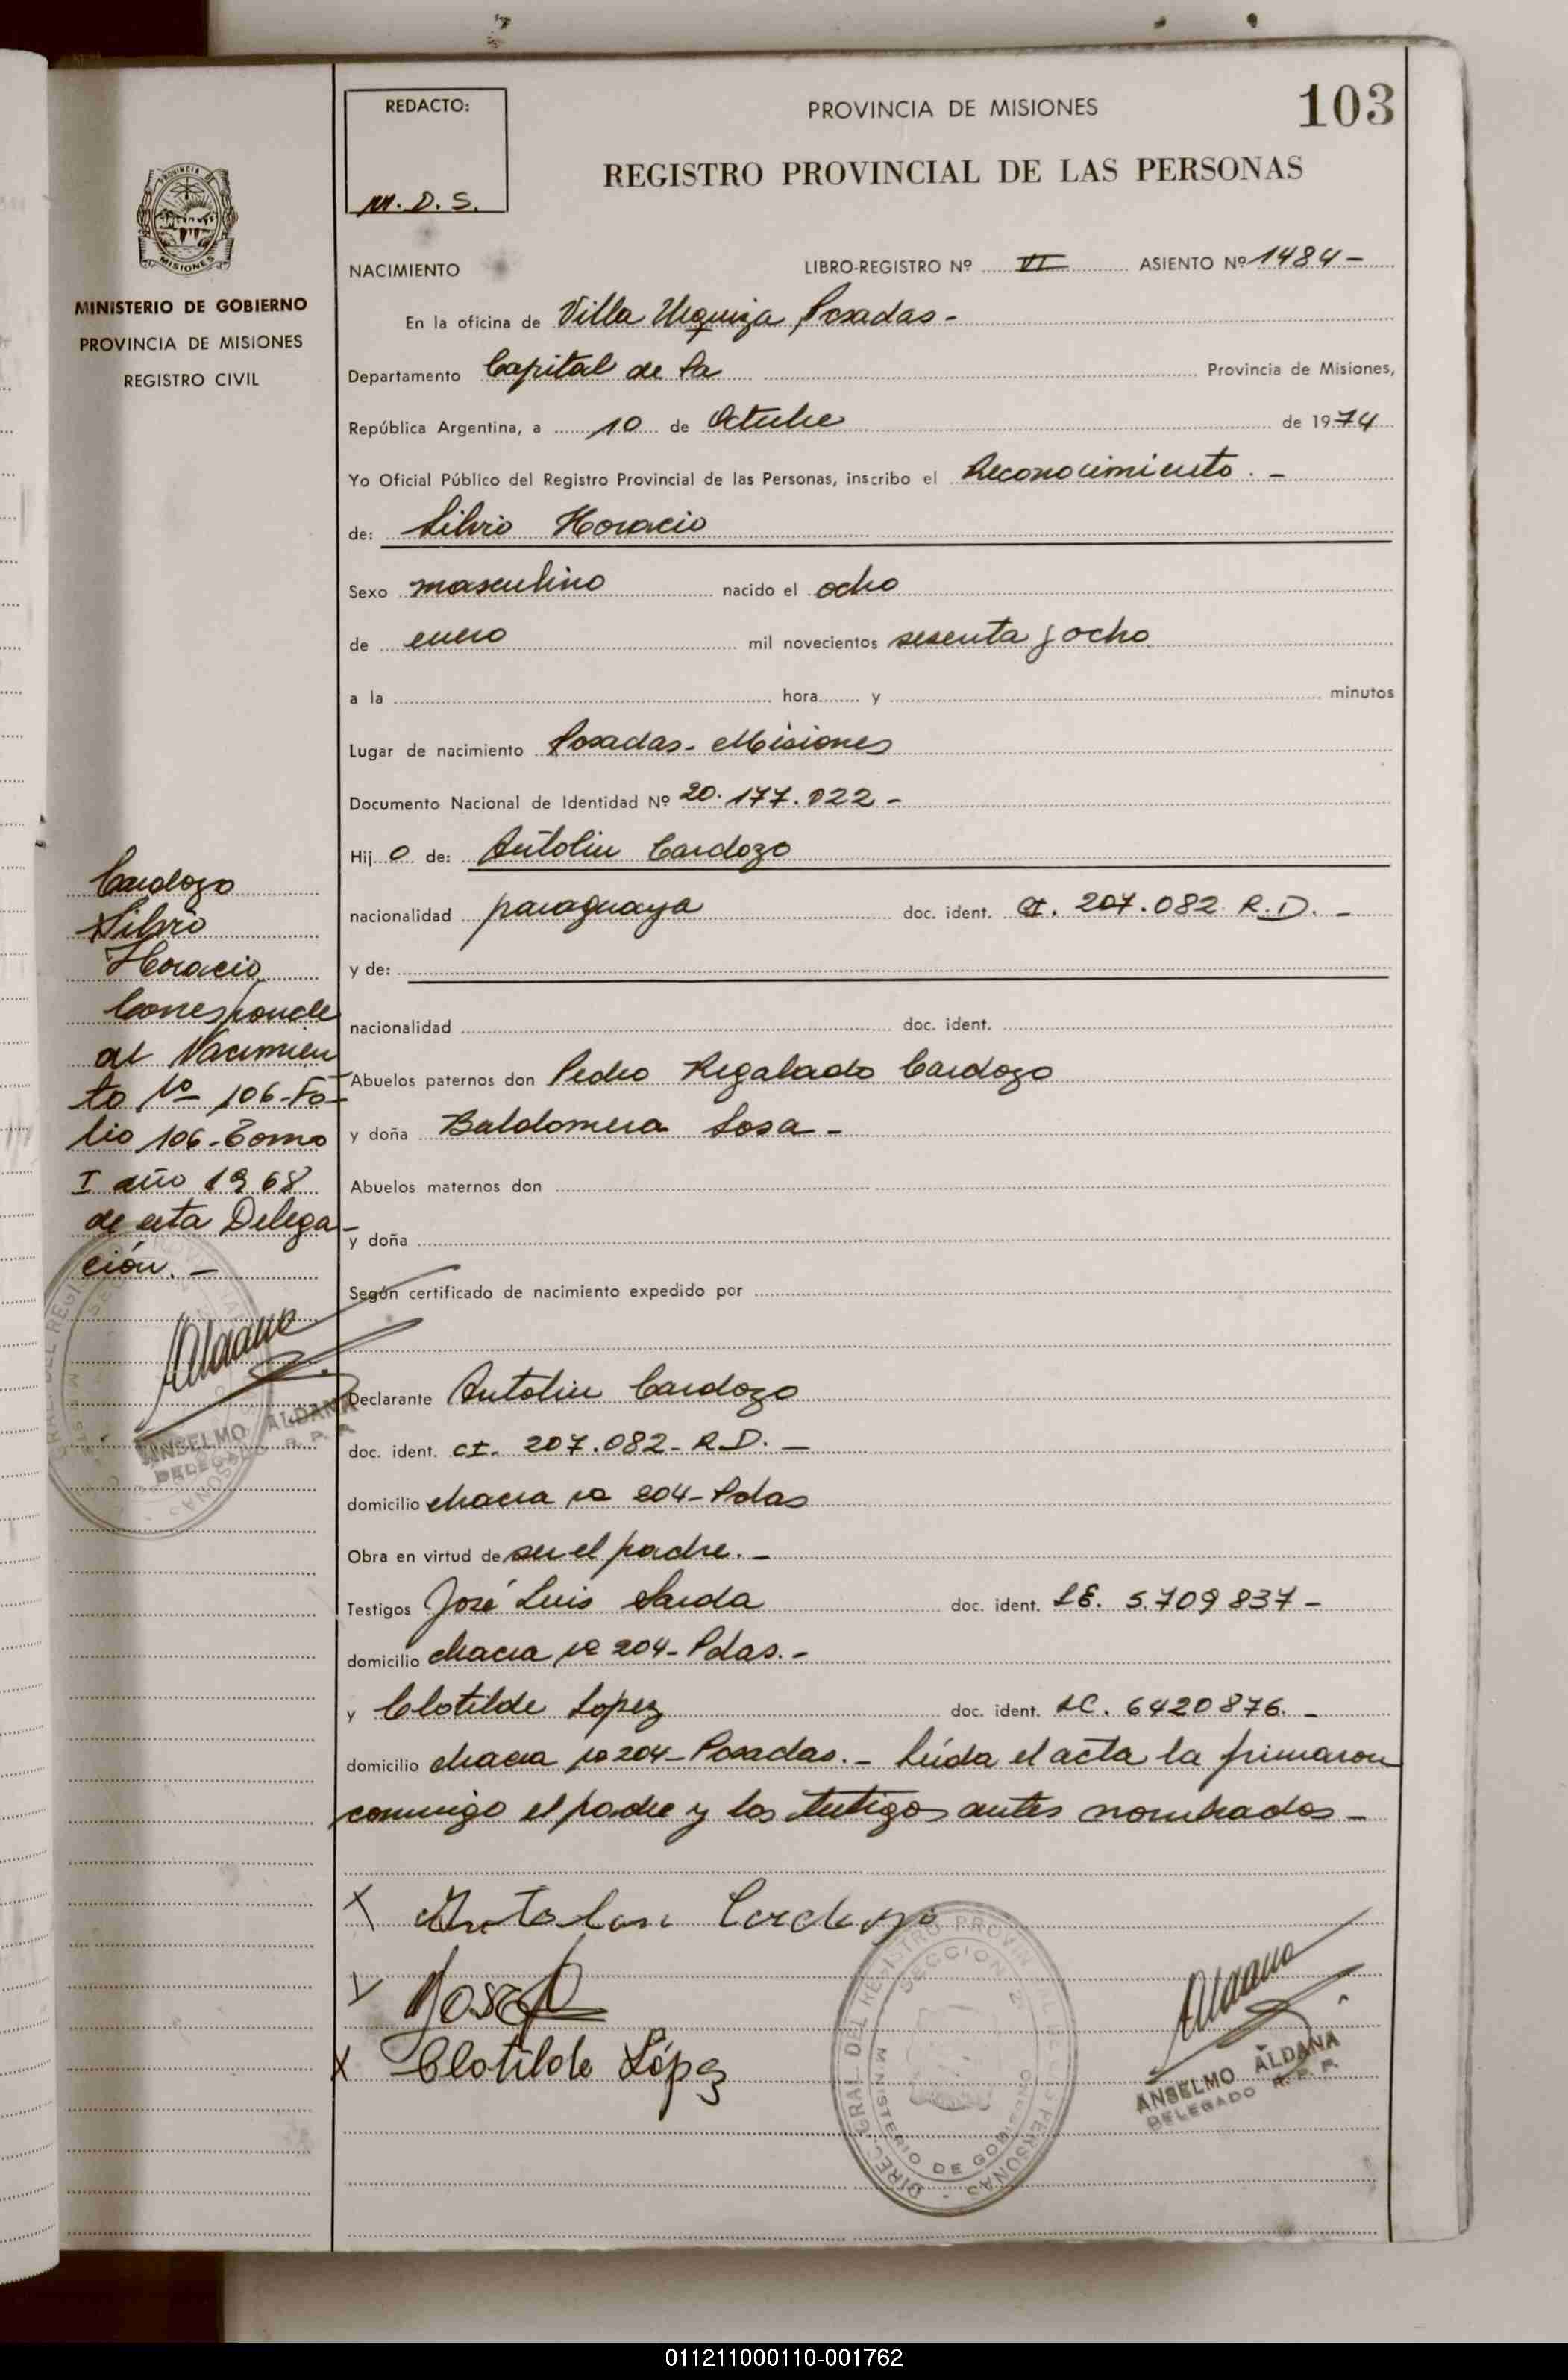 103
REDACTO:
M. D. S.
PROVINCIA DE MISIONES
REGISTRO PROVINCIAL DE LAS PERSONAS
PROVINCIA DE
MISIONES
MINISTERIO DE GOBIERNO
PROVINCIA DE MISIONES
REGISTRO CIVIL
NACIMIENTO LIBRO-REGISTRO Nº VI ASIENTO Nº 1484-
En la oficina de Villa Urquiza, Posadas-
Departamento Capital de la Provincia de Misiones,
República Argentina, a 10 de Octubre de 1974
Yo Oficial Público del Registro Provincial de las Personas, inscribo el Reconocimiento.-
de: Silvio Horacio
Sexo masculino nacido el ocho
de enero mil novecientos sesenta y ocho
a la hora y minutos
Lugar de nacimiento Posadas-Misiones
Documento Nacional de Identidad Nº 20.177.022-
Hij o de: Antolin Cardozo
nacionalidad paraguaya doc. ident. CI. 207.082 R.D.-
y de:
nacionalidad doc. ident.
Abuelos paternos don Pedro Regalado Cardozo
y doña Baldomera Sosa-
Abuelos maternos don
y doña
Según certificado de nacimiento expedido por
Declarante Antolin Cardozo
doc. ident. CI. 207.082-R.D.-
domicilio chacra nº 204-Pdas
Obra en virtud de ser el padre.-
Testigos José Luis Sarda doc. ident. LE. 5.709837-
domicilio chacra nº 204-Pdas.-
y Clotilde Lopez doc. ident. LC. 6420876.-
domicilio chacra nº 204-Posadas.- Leída el acta la firmaron
conmigo el padre y los testigos antes nombrados-
Cardozo
Silvio
Horacio
Corresponde
al Nacimien
to Nº 106-Fo-
lio 106-Tomo
I año 1968
de esta Delega-
ción.-
Aldana
ANSELMO ALDANA
DELEGADO R. P. P.
X Antolin Cardozo
X Clotilde López
DIREC. GRAL. DEL REGISTRO PROVINCIAL DE LAS PERSONAS
SECCION 2
MINISTERIO DE GOBIERNO
Aldana
ANSELMO ALDANA
DELEGADO R. P. P.
011211000110-001762